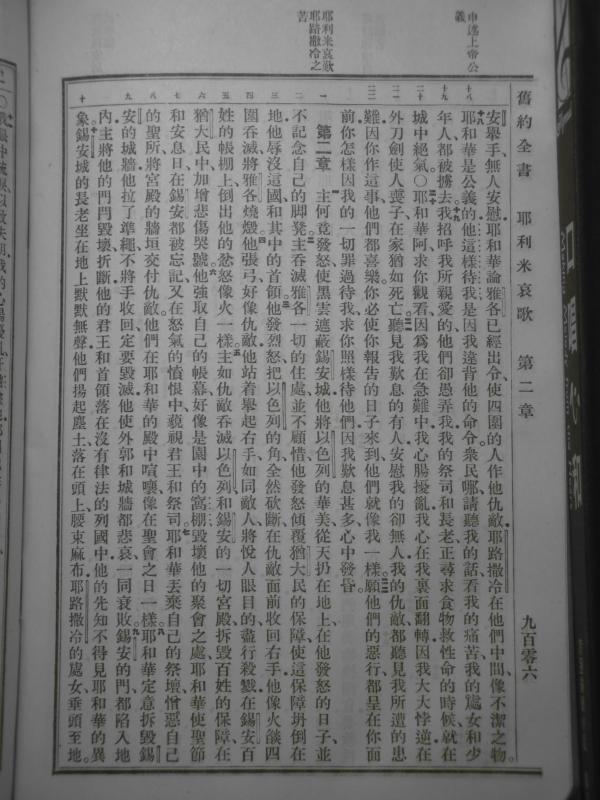 申述上帝公
義
耶利米哀歌
耶路撒冷之
苦
舊約全書 耶利米哀歌 第二章 九百零六
安舉手無人安慰耶和華論雅各已經出令使四圍的人作他仇敵耶路撒冷在他們中間像不潔之物
十八 耶和華是公義的他這樣待我是因我違背他的命令衆民哪請聽我的話看我的痛苦我的處女和少
十九 年人都被擄去我招呼我所親愛的他們卻愚弄我我的祭司和長老正尋求食物救性命的時候就在
二十 城中絕氣〇耶和華阿求你觀看因爲我在急難中我心腸擾亂我心在我裏面翻轉因我大大悖逆在
二一 外刀劍使人喪子在家猶如死亡聽見我歎息的有人安慰我的卻無人我的仇敵都聽見我所遭的患
二二 難因你作這事他們都喜樂你必使你報告的日子來到他們就像我一樣願他們的惡行都呈在你面
前你怎樣因我的一切罪過待我求你照樣待他們因我歎息甚多心中發昏
一 第二章 主何竟發怒使黑雲遮蔽錫安城他將以色列的華美從天扔在地上在他發怒的日子並
二 不記念自己的脚凳主吞滅雅各一切的住處並不顧惜他發怒傾覆猶大民的保障使這保障坍倒在
三 地他辱沒這國和其中的首領他發烈怒把以色列的角全然砍斷在仇敵面前收回右手他像火燄四
四 圍吞滅將雅各燒燬他張弓好像仇敵他站着舉起右手如同敵人將悅人眼目的盡行殺戮在錫安百
五 姓的帳棚上倒出他的忿怒像火一樣主如仇敵吞滅以色列和錫安的一切宮殿拆毀百姓的保障在
六 猶大民中加增悲傷哭號他強取自己的帳幕好像是園中的窩棚毀壞他的聚會之處耶和華使聖節
七 和安息日在錫安都被忘記又在怒氣的憤恨中藐視君王和祭司耶和華丟棄自己的祭壇憎惡自己
八 的聖所將宮殿的牆垣交付仇敵他們在耶和華的殿中喧嚷像在聖會之日一樣耶和華定意拆毀錫
九 安的城牆他拉了準繩不將手收回定要毀滅他使外郭和城牆都悲哀一同衰敗錫安的門都陷入地
內主將他的門閂毀壞折斷他的君王和首領落在沒有律法的列國中他的先知不得見耶和華的異
十 象錫安城的長老坐在地上默默無聲他們揚起塵土落在頭上腰束麻布耶路撒冷的處女垂頭至地